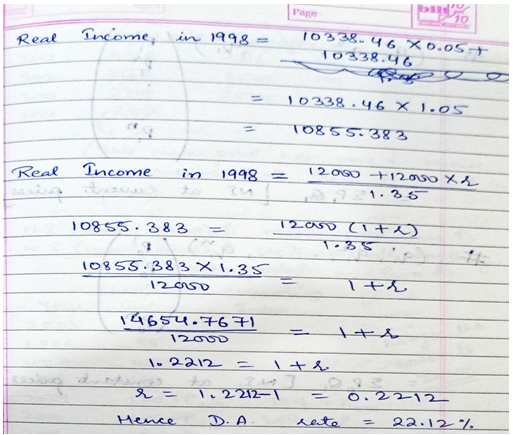 Page
Real Income, in 1998 = 10338.46 × 0.05 +
10338.46
= 10338.46 × 1.05
= 10855.383
Real Income in 1998 = 12000 + 12000 × r
1.35
10855.383 = 12000 (1 + r)
1.35
10855.383 × 1.35 = 1 + r
12000
14654.7671 = 1 + r
12000
1.2212 = 1 + r
r = 1.2212-1 = 0.2212
Hence D.A. rate = 22.12%